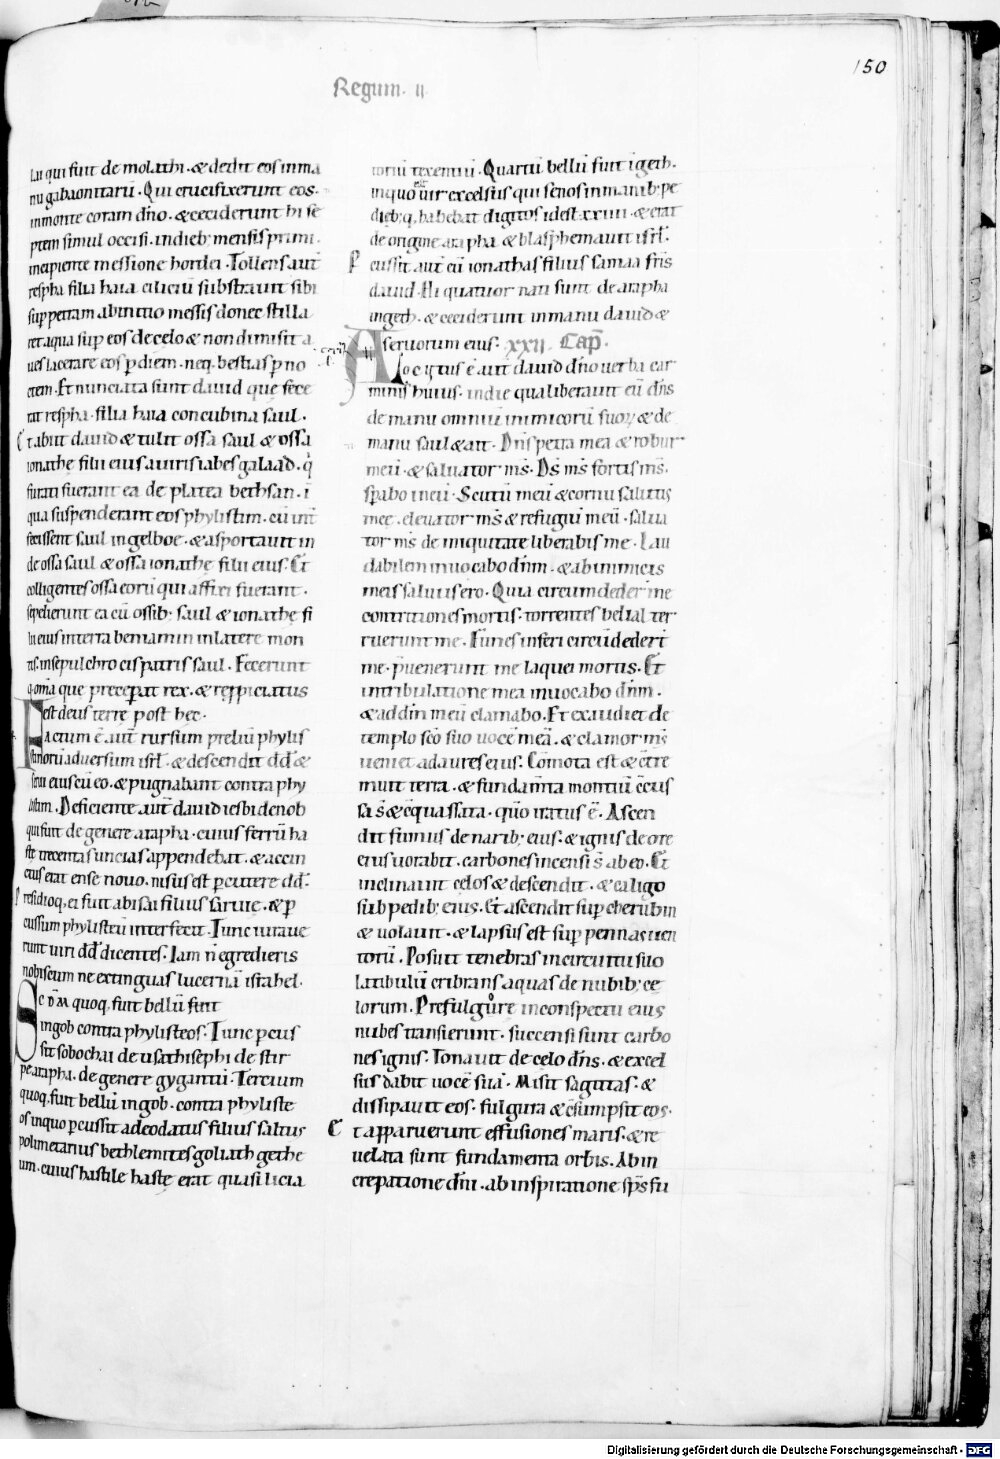 150
Regum · II
lai qui fuit de molathi · & dedit eos in ma
nu gabaonitarū · Qui crucifixerunt eos ·
in monte coram dño · & ceciderunt hi se
ptem simul occisi · in dieb; mensis primi ·
incipiente messione hordei · Tollens aut̄
respha filia haia ciliciū substrauit sibi
sup̄ petram ab initio messis donec stilla
ret aqua sup̄ eos de celo & non dimisit a
ues lacerare eos p̄ diem · neq; bestias p̄ no
ctem · Et nunciata sunt dauid que fece
rat respha · filia haia concubina saul ·
Et abiit dauid & tulit ossa saul & ossa
ionathe filii eius a uiris iabes galaad · q̇
furati fuerant ea de platea bethsan · ī
qua suspenderant eos phylistim · cū int̄
fecissent saul in gelboe · & asportauit in
de ossa saul & ossa ionathe filii eius · Et
colligentes ossa eorū qui affixi fuerant ·
sepelierunt ea cū ossib; saul & ionathe fi
lii eius in terra beniamin in latere mon
tis · in sepulchro cis patris saul · Fecerunt
q; om̄a que precep̄at rex · & repropiciatus
est deus terre post hec ·
Factum ē aut̄ rursum preliū phylis
tinorū aduersum isrl̄ · & descendit dd̄ &
serui eius cū eo · & pugnabant contra phy
listim · Deficiente aut̄ dauid iesbi de nob
qui fuit de genere arapha · cuius ferrū ha
ste trecentas uncias appendebat · & accin
ctus erat ense nouo · nisus est p̄cutere dd̄ ·
Presidioq; ei fuit abisai filius saruie · & p̄
cussum phylisteū interfecit · Tunc iuraue
runt uiri dd̄ dicentes · Iam n̄ egredieris
nobiscum ne extinguas lucernā israhel ·
Scdm quoq; fuit bellū fuit
in gob contra phylisteos · Tunc p̄cus
sit sobochai de usathi sephi de stir
pe arapha · de genere gygantiū · Tercium
quoq; fuit bellū in gob · contra phyliste
os in quo p̄cussit adeodatus filius saltus
polimetarius bethlemites goliath gethe
um · cuius hastile haste erat quasi licia
toriū texentiū · Quartū bellū fuit ī geth ·
in quo uir est excelsus qui senos in manib; pe
dib; q; habebat digitos id est · XXIIII · & erat
de origine arapha & blasphemauit isrl̄ ·
Pcussit aut̄ eū ionathas filius samaa fr̄is
dauid · Hi quatuor nati sunt de arapha
in geth · & ceciderunt in manu dauid &
seruorum eius · XXII · Cap̄ ·
Alocutus ē aut̄ dauid dño uerba car
minis huius · in die qua liberauit eū dn̄s
de manu omniū inimicorū suoꝝ & de
manu saul & ait · Dn̄s petra mea & robur
meū · & saluator ms̄ · Ds̄ ms̄ fortis ms̄ ·
sp̄abo in eū · Scutū meū & cornu salutis
mee · eleuator ms̄ & refugiū meū · salua
tor ms̄ de iniquitate liberabis me · Lau
dabilem inuocabo dn̄m · & ab inimicis
meis saluus ero · Quia circumdeder̄ me
contritiones mortis · torrentes belial ter
ruerunt me · Funes inferi circūdeder̄t
me · p̄uenerunt me laquei mortis · Et
in tribulatione mea inuocabo dn̄m ·
& ad dm̄ meū clamabo · Et exaudiet de
templo sc̄o suo uocē meā · & clamor ms̄
ueniet ad aures eius · Com̄ota est & c̄tre
muit terra · & fundam̄ta montiū c̄cus
sa s̄ & c̄quassata · qm̄o iratus ē · Ascen
dit fumus de narib; eius · & ignis de ore
eius uorabit · carbones incensi s̄ ab eo · Et
inclinauit celos & descendit · & caligo
sub pedib; eius · Et ascendit sup̄ cherubin
& uolauit · & lapsus est sup̄ pennas uen
torū · Posuit tenebras in circuitu suo
latibulū cribrans aquas de nubib; ce
lorum · Prefulgore in conspectu eius
nubes transierunt · succensi sunt carbo
nes ignis · Tonauit de celo dn̄s · & excel
sus dabit uocē suā · Misit sagittas · &
dissipauit eos · fulgura & c̄sumpsit eos ·
Et apparuerunt effusiones maris · & re
uelata sunt fundamenta orbis · Ab in
crepatione dn̄i · ab inspiratione sp̄s fu
Digitalisierung gefördert durch die Deutsche Forschungsgemeinschaft · DFG